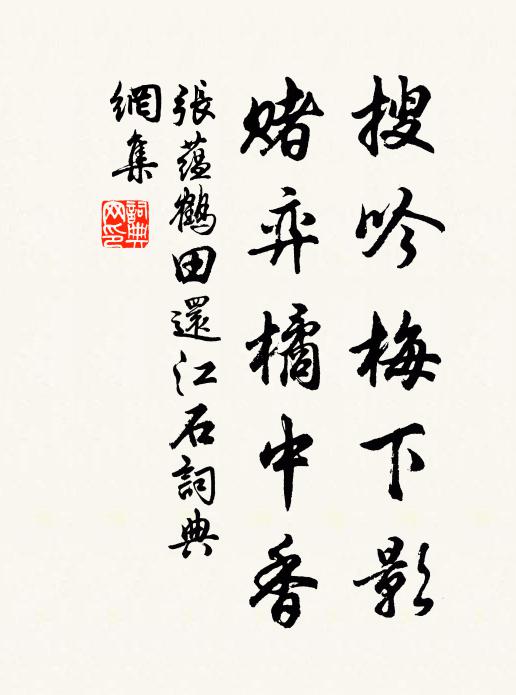 搜吟梅下影
賭弈橘中香
張蘊鶴田還江石詞典
網集
詞典
网印